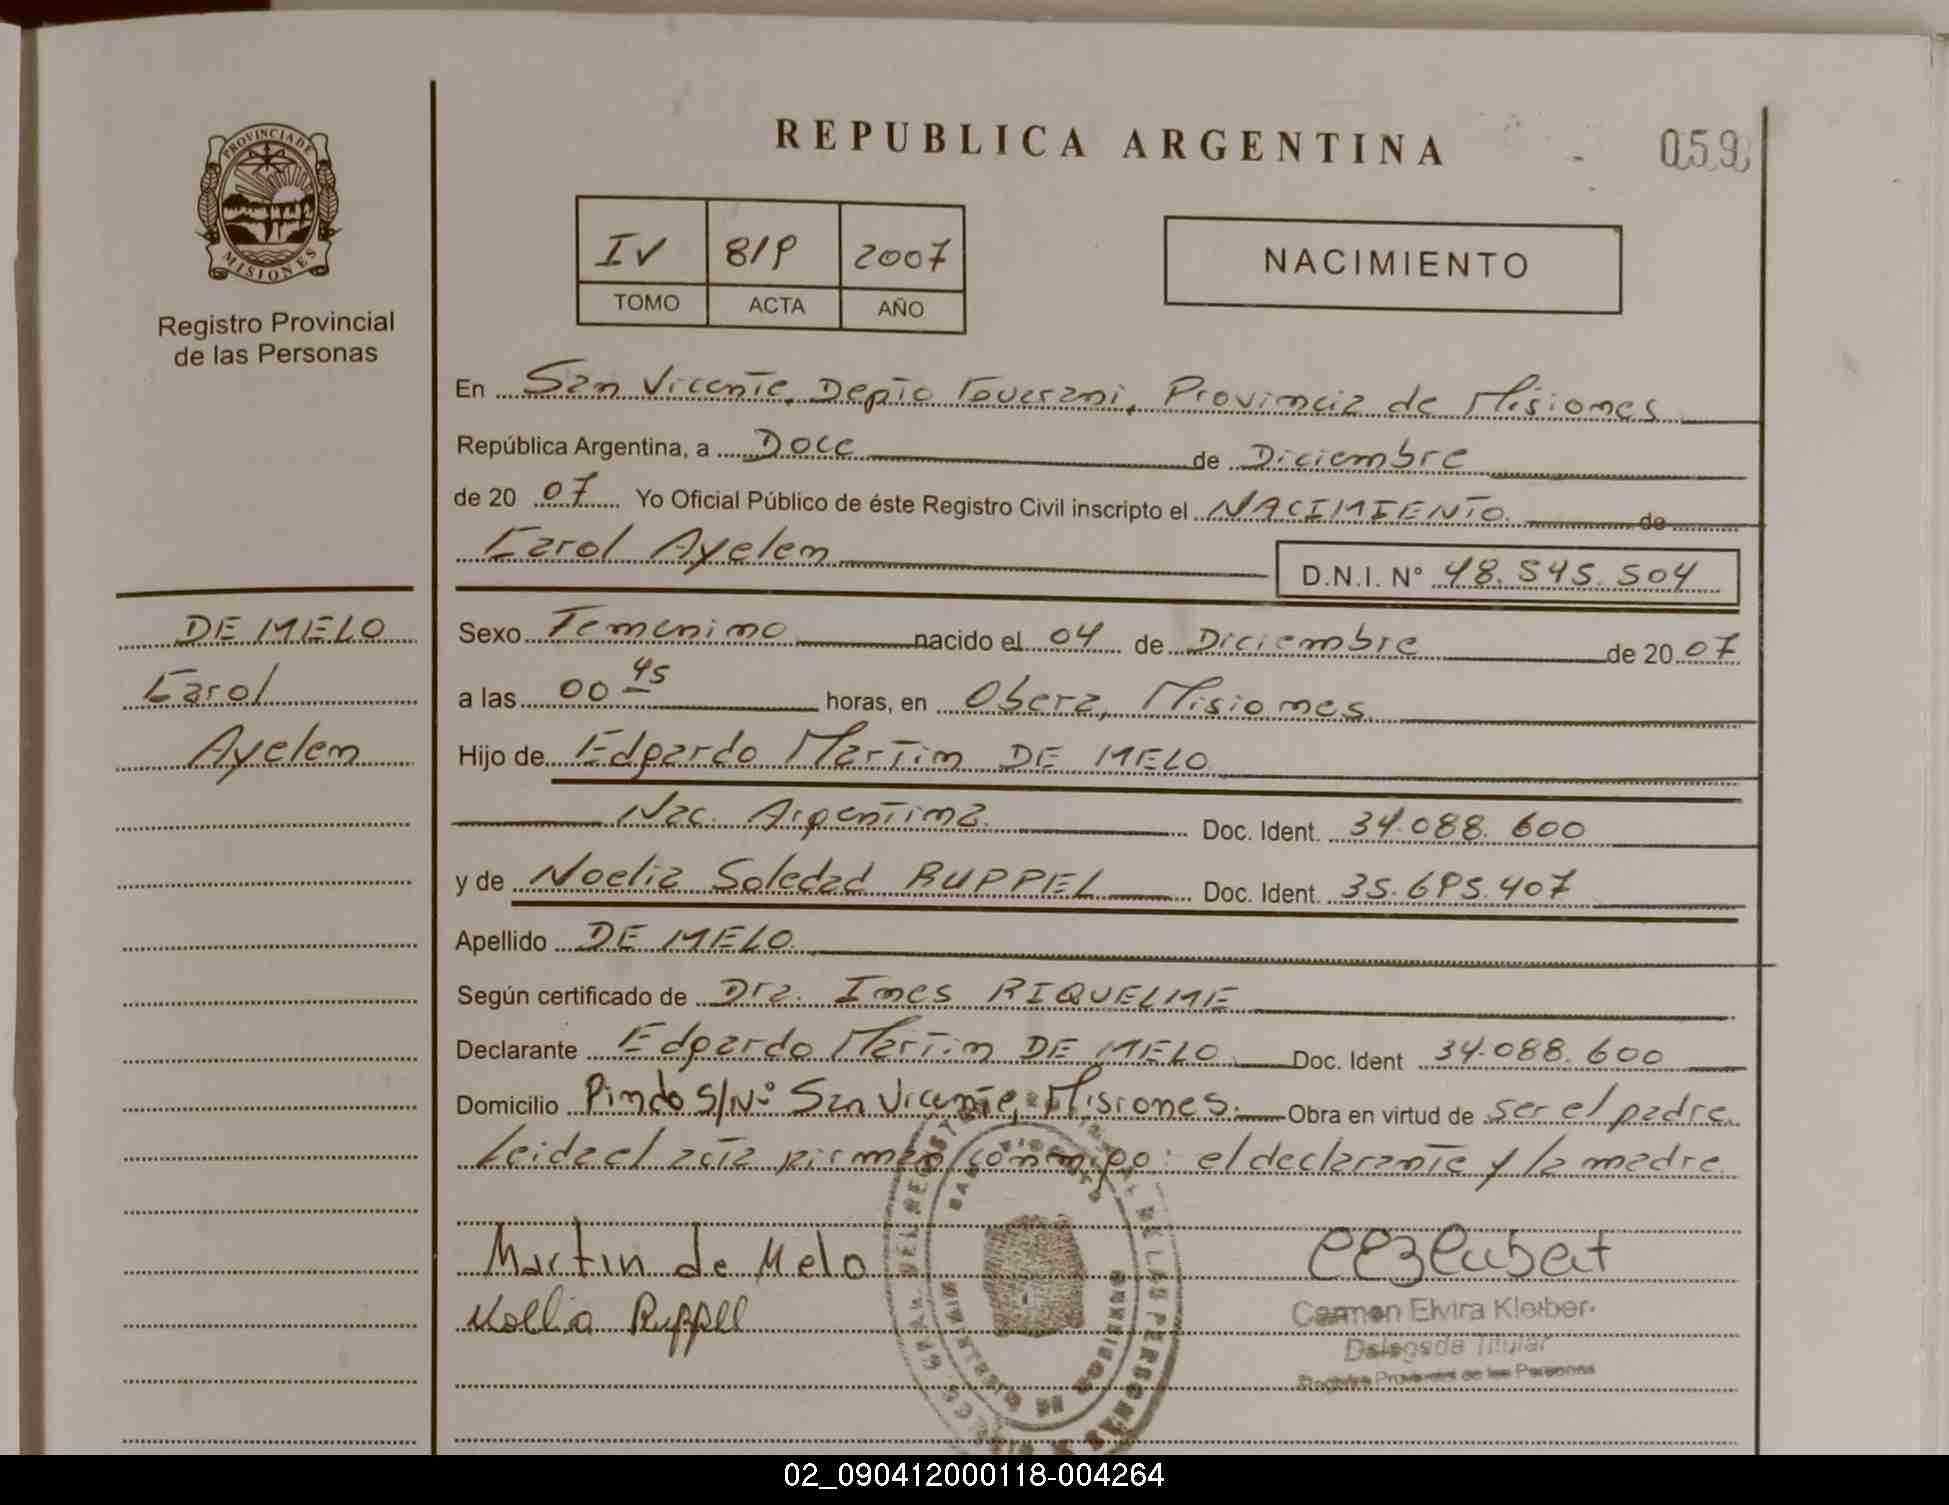 REPUBLICA ARGENTINA
059
PROVINCIA DE
MISIONES
Registro Provincial
de las Personas
IV 819 2007
TOMO ACTA AÑO
NACIMIENTO
En San Vicente, Depto Guarani, Provincia de Misiones
República Argentina, a Doce de Diciembre
de 20 07 Yo Oficial Público de éste Registro Civil inscripto el NACIMIENTO de
Karol Ayelen
D.N.I. N° 48.545.504
DE MELO
Karol
Ayelen
Sexo Femenino nacido el 04 de Diciembre de 20 07
a las 00 45 horas, en Obera, Misiones
Hijo de Edgardo Martin DE MELO
Nac. Argentina Doc. Ident. 34.088.600
y de Noelia Soledad RUPPEL Doc. Ident. 35.695.407
Apellido DE MELO
Según certificado de Dra. Ines RIQUELME
Declarante Edgardo Martin DE MELO Doc. Ident 34.088.600
Domicilio Pindo S/Nº San Vicente, Misiones. Obra en virtud de ser el padre.
Leida el acta firman conmigo: el declarante y la madre.
Martin de Melo
Ruppel
Carmen Elvira Kleiber
Delegada Titular
Registro Provincial de las Personas
02_090412000118-004264